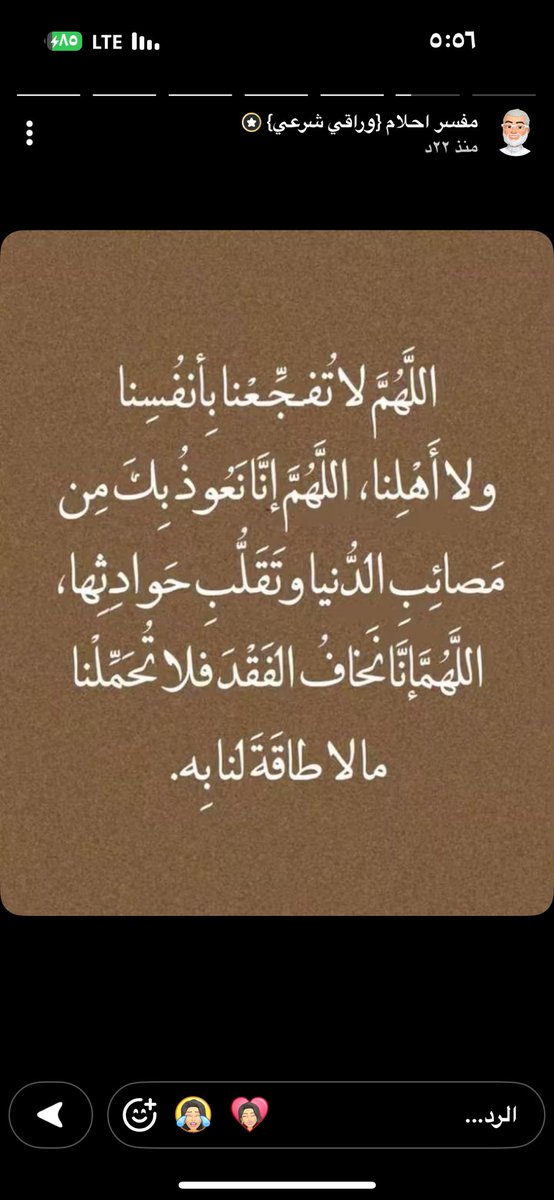 ٥:٥٦
LTE ٨٥
مفسر احلام {وراقي شرعي}
منذ ٢٢د
اللَّهُمَّ لا تُفجِّعْنا بِأنفُسِنا
ولا أَهْلِنا، اللَّهُمَّ إنَّا نَعُوذُ بِكَ مِن
مَصائِبِ الدُّنيا وتَقَلُّبِ حَوادِثِها،
اللَّهُمَّ إنَّا نَخافُ الفَقْدَ فلا تُحَمِّلْنا
ما لا طاقَةَ لنا بِه.
الرد...